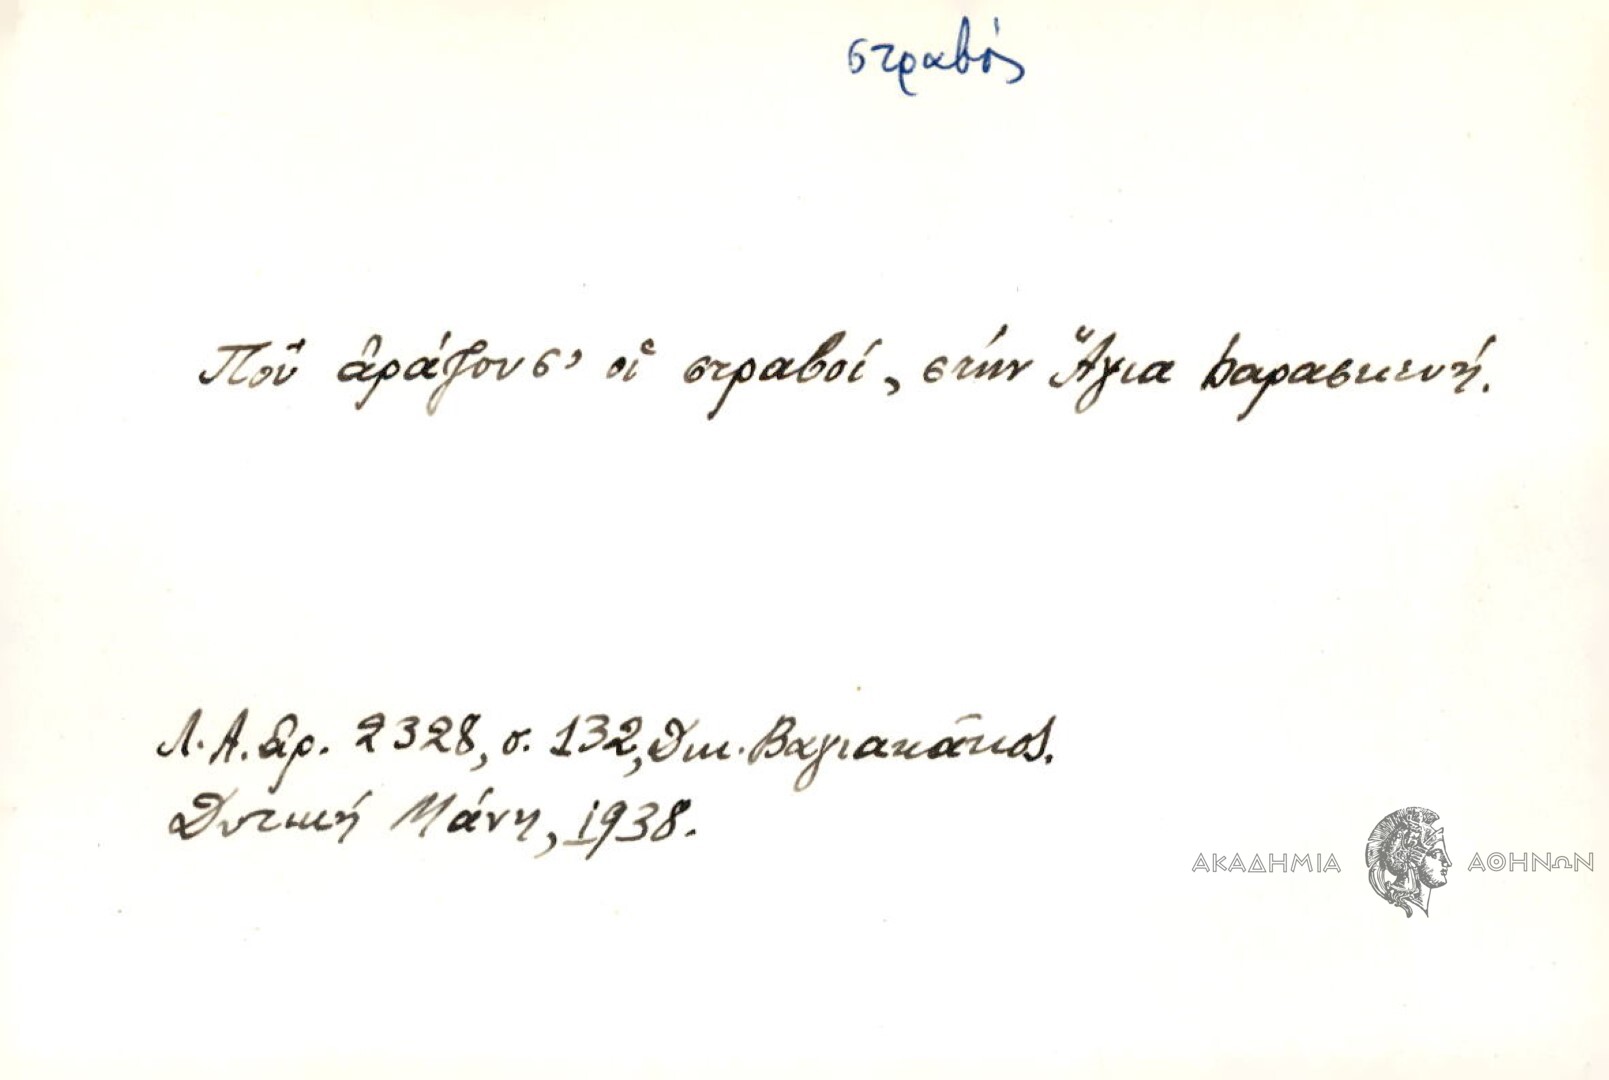 στραβός
Ποῦ ἀράζουσ' οἱ στραβοί, στήν Ἅγια Ϸαρασκευή.
Λ.Α. ἀρ. 2328, σ. 132, Δικ. Βαγιακάκος.
Δυτική Μάνη, 1938.
ΑΚΑΔΗΜΙΑ ΑΘΗΝΩΝ